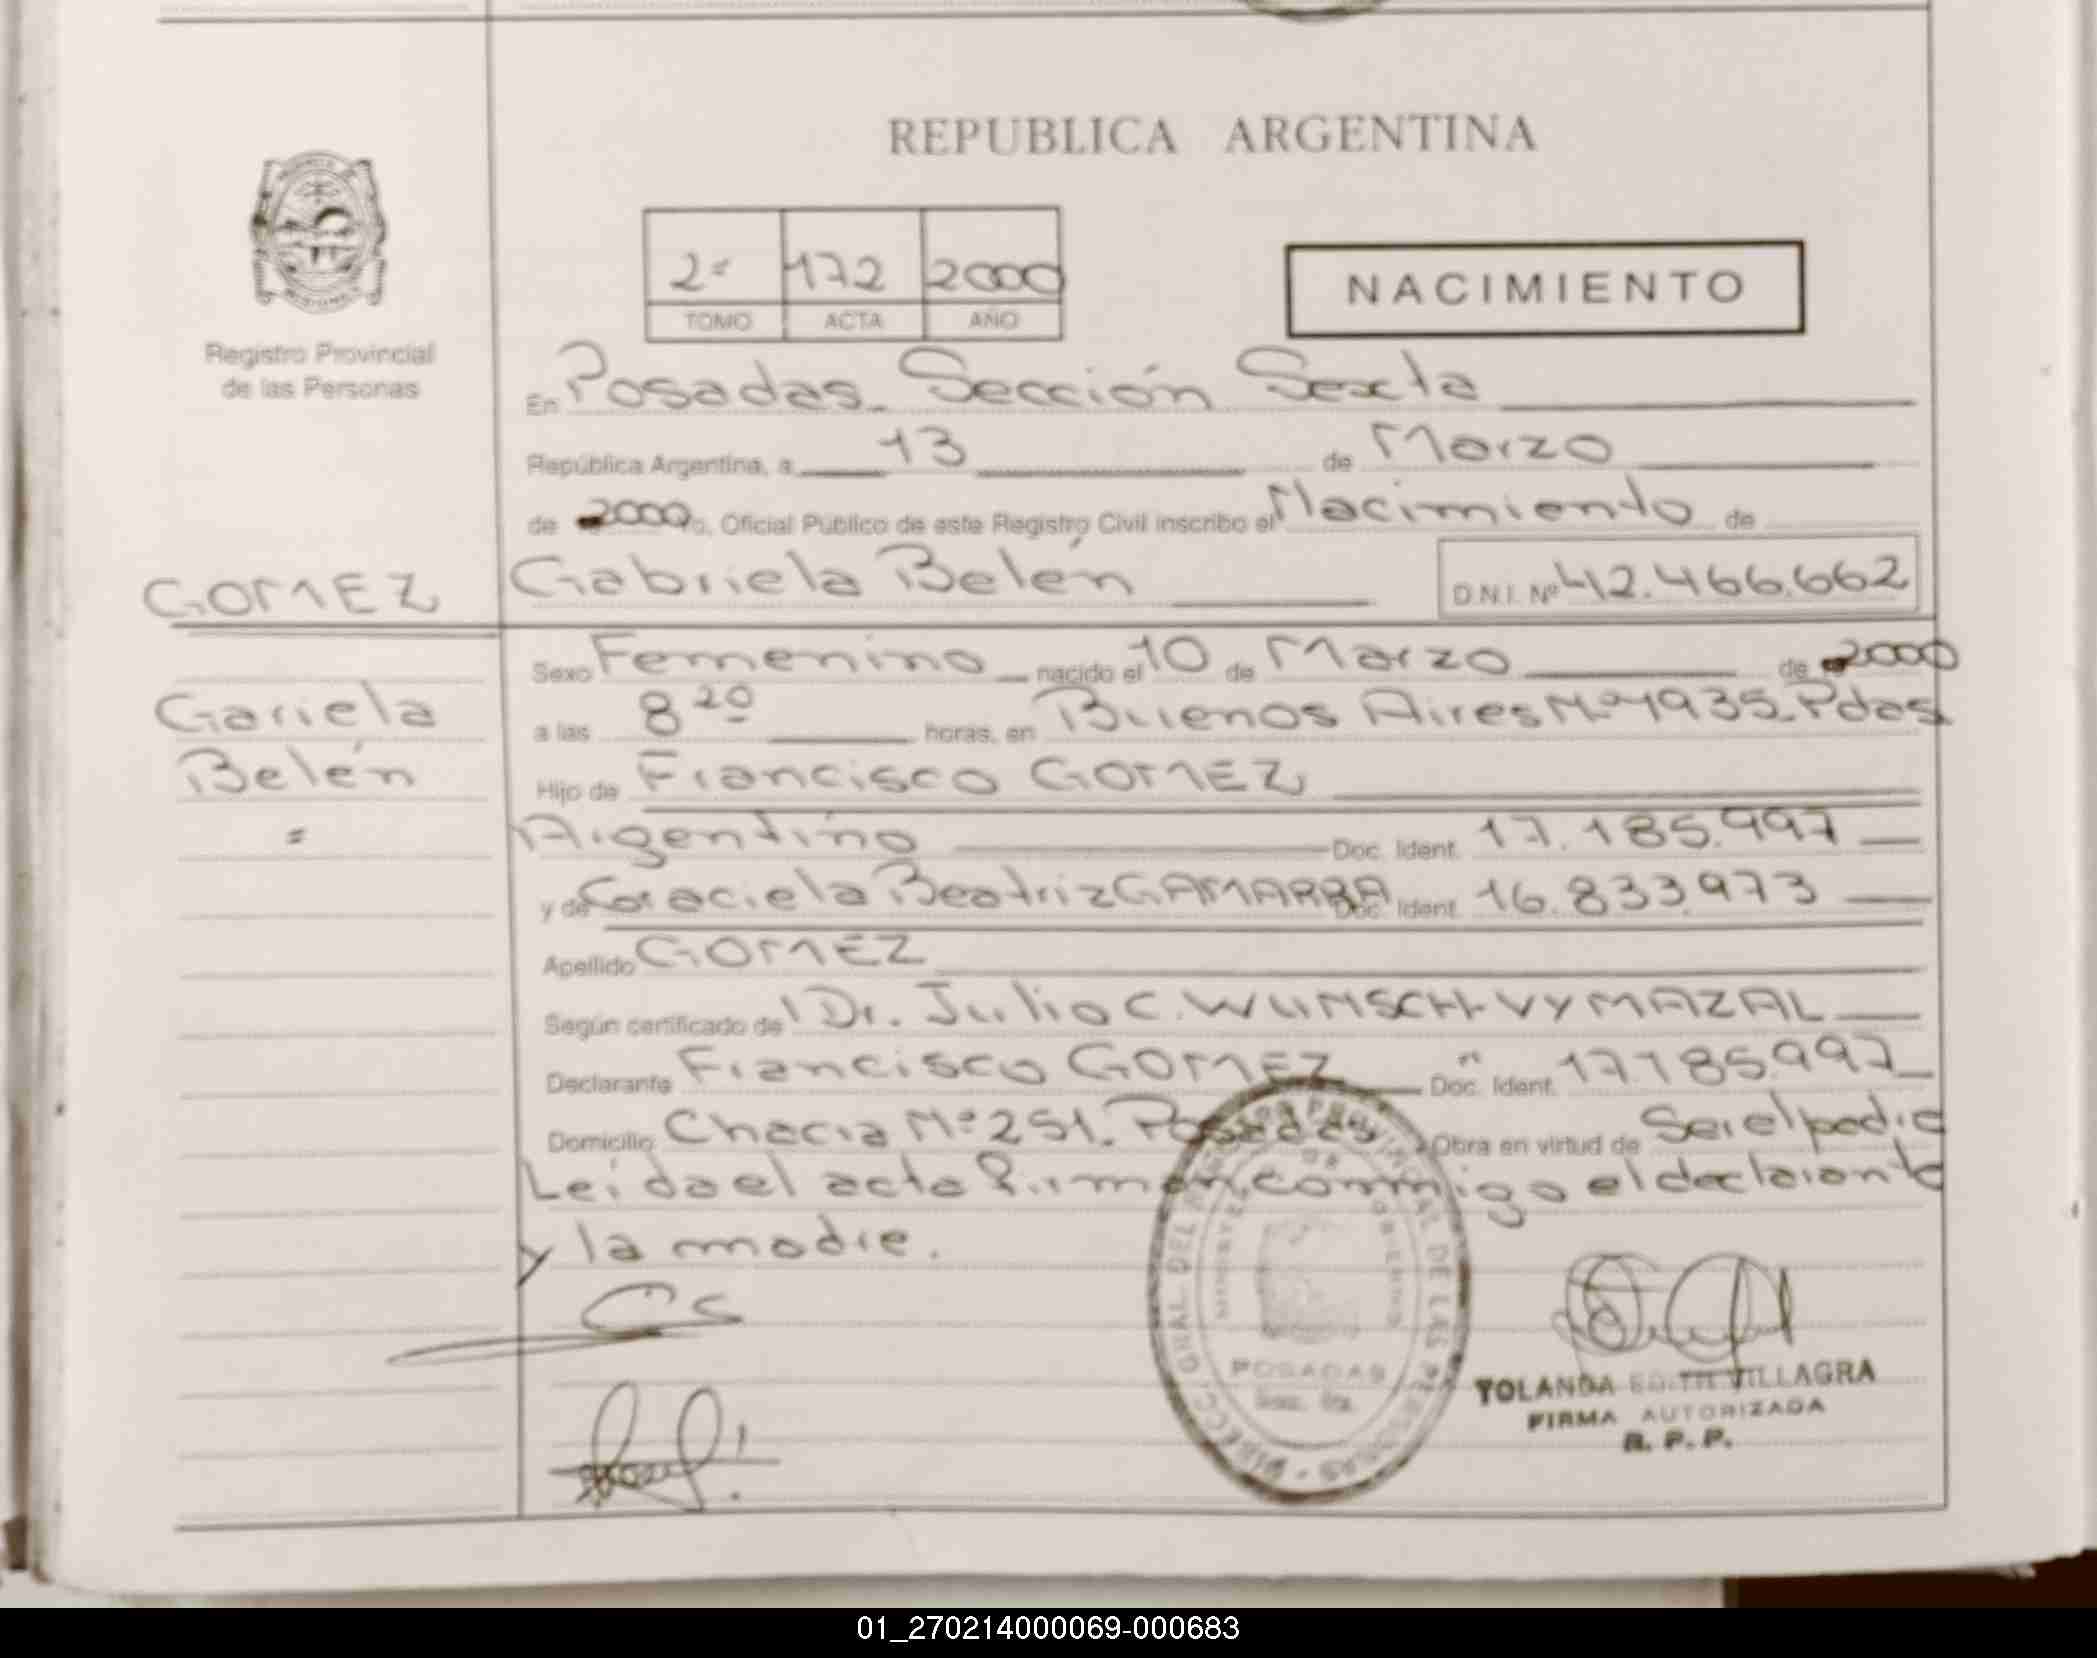 REPUBLICA ARGENTINA
2º 172 2000
TOMO ACTA AÑO
NACIMIENTO
Registro Provincial
de las Personas
En Posadas. Sección Sexta
República Argentina, a 13 de Marzo
de 2000 o, Oficial Público de este Registro Civil inscribo el Nacimiento de
GOMEZ
Gabriela Belén D.N.I. Nº 42.466.662
Sexo Femenino nacido el 10 de Marzo de 2000
Gariela
Belén
=
a las 8 20 horas, en Buenos Aires Nº 1935. Pdas
Hijo de Francisco GOMEZ
Argentino Doc. Ident. 17.185.997
y de Graciela Beatriz GAMARRA Doc. Ident. 16.833.973
Apellido GOMEZ
Según certificado de Dr. Julio C. WUNSCH-VYMAZAL
Declarante Francisco GOMEZ Doc. Ident. 17.185.997
Domicilio Chacra Nº 251. Posadas Obra en virtud de Ser el padre
Leída el acta firman conmigo el declarante
y la madre.
DIRECC. GRAL. DEL REGISTRO PROVINCIAL DE LAS PERSONAS
MINISTERIO DE GOBIERNO
POSADAS
YOLANDA EDITH VILLAGRA
FIRMA AUTORIZADA
R. P. P.
01_270214000069-000683